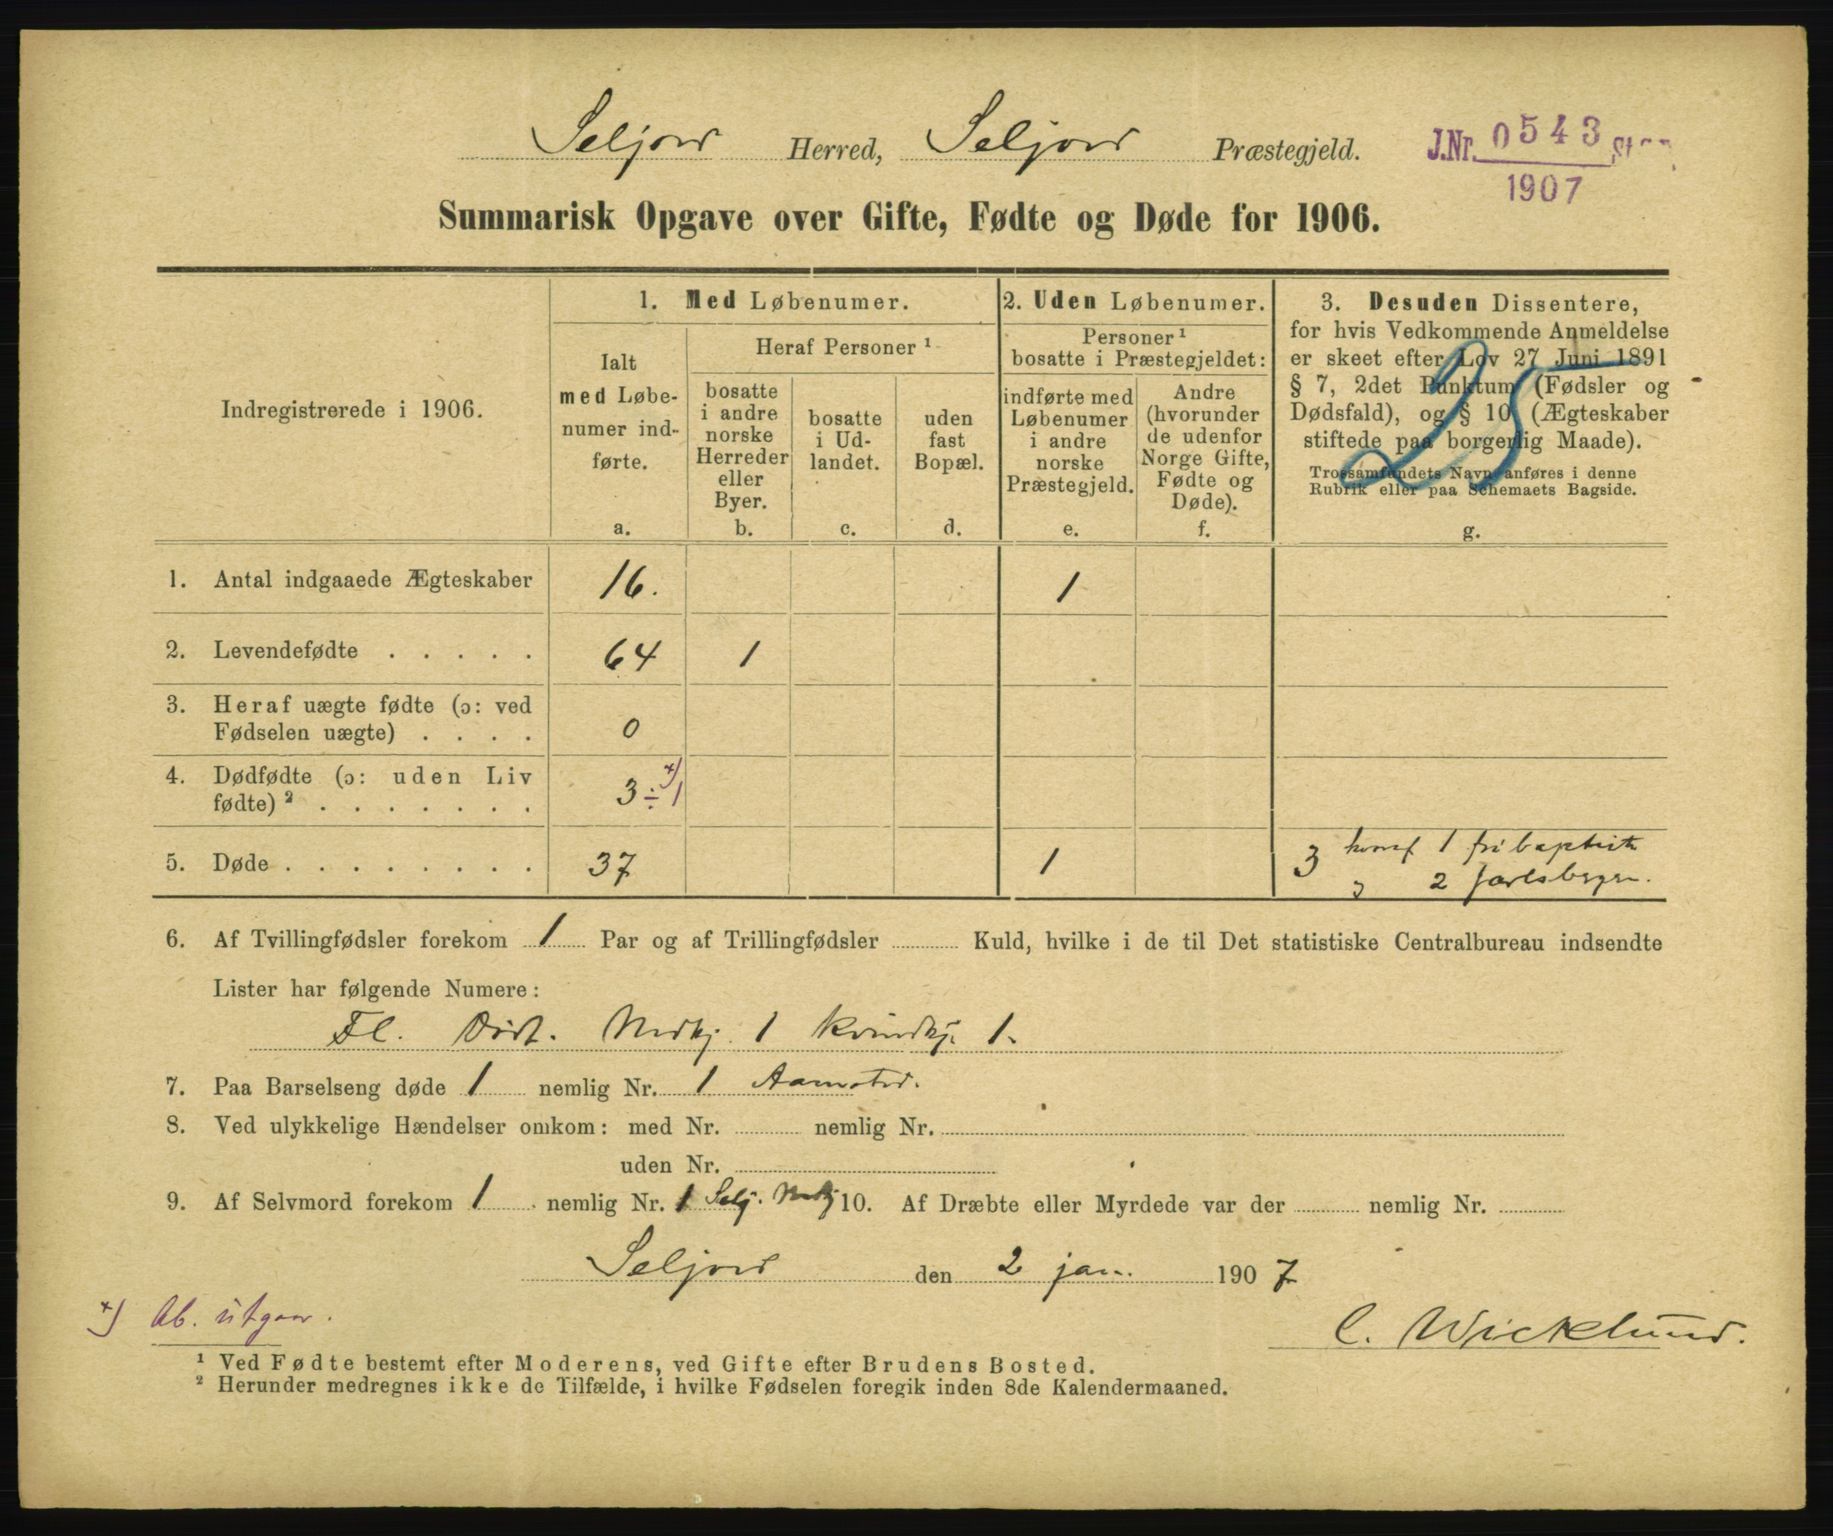 Seljord Herred, Seljord Præstegjeld.
J.Nr. 0543
1907
Summarisk Opgave over Gifte, Fødte og Døde for 1906.
Indregistrerede i 1906.
1. Med Løbenumer.
Ialt
med Løbe-
numer ind-
førte.
a.
Heraf Personer ¹
bosatte
i andre
norske
Herreder
eller
Byer.
b.
bosatte
i Ud-
landet.
c.
uden
fast
Bopæl.
d.
2. Uden Løbenumer.
Personer ¹
bosatte i Præstegjeldet:
indførte med
Løbenumer
i andre
norske
Præstegjeld.
e.
Andre
(hvorunder
de udenfor
Norge Gifte,
Fødte og
Døde).
f.
3. Desuden Dissentere,
for hvis Vedkommende Anmeldelse
er skeet efter Lov 27 Juni 1891
§ 7, 2det Punktum (Fødsler og
Dødsfald), og § 10 (Ægteskaber
stiftede paa borgerlig Maade).
Trossamfundets Navn anføres i denne
Rubrik eller paa Schemaets Bagside.
g.
25
1. Antal indgaaede Ægteskaber 16. 1
2. Levendefødte . . . . . 64 1
3. Heraf uægte fødte (ɔ: ved
Fødselen uægte) . . . . 0
4. Dødfødte (ɔ: uden Liv
fødte) ² . . . . . . . 3 ÷ 1 *)
5. Døde . . . . . . . . 37 1 3 hvoraf 1 fribaptist
2 Jarlsbergen.
6. Af Tvillingfødsler forekom 1 Par og af Trillingfødsler Kuld, hvilke i de til Det statistiske Centralbureau indsendte
Lister har følgende Numere:
Fl. Dist. Mdkj. 1 Kvindkj. 1.
7. Paa Barselseng døde 1 nemlig Nr. 1 Aamotsd.
8. Ved ulykkelige Hændelser omkom: med Nr. nemlig Nr.
uden Nr.
9. Af Selvmord forekom 1 nemlig Nr. 1 Selj. Mdkj 10. Af Dræbte eller Myrdede var der nemlig Nr.
Seljord den 2 jan. 1907
*) Ab. utgaar.
C. Wicklund.
¹ Ved Fødte bestemt efter Moderens, ved Gifte efter Brudens Bosted.
² Herunder medregnes ikke de Tilfælde, i hvilke Fødselen foregik inden 8de Kalendermaaned.